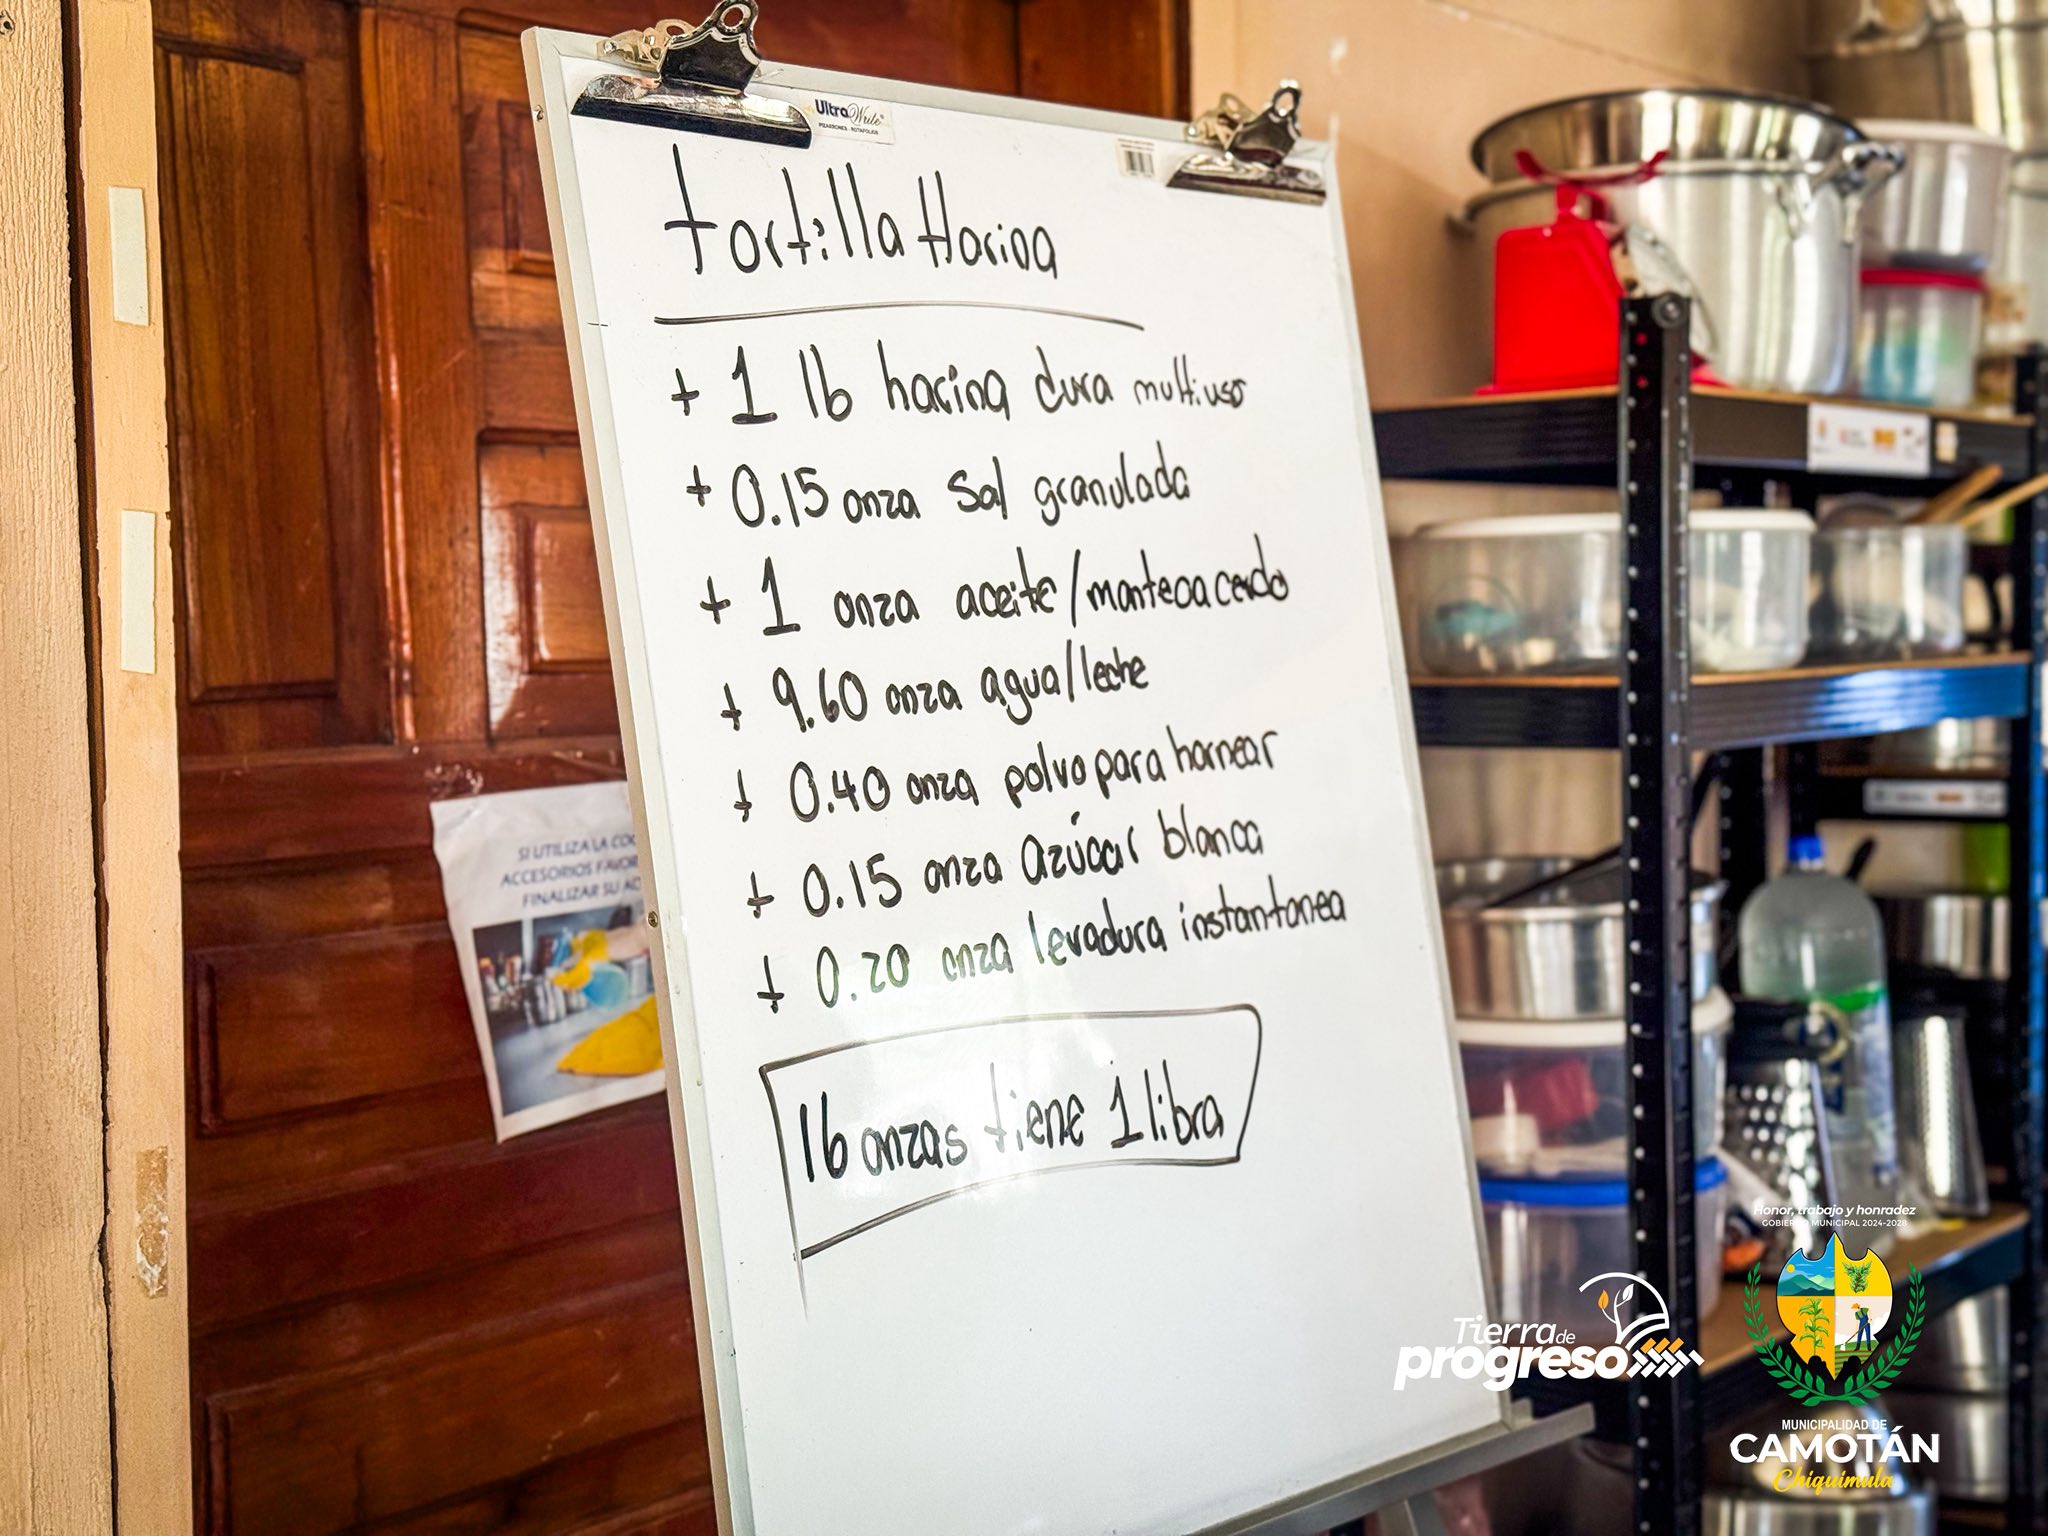 UltraWrite®
PIZARRONES - ROTAFOLIOS
tortilla Harina
+ 1 lb harina dura multiuso
+ 0.15 onza Sal granulada
+ 1 onza aceite/manteca cerdo
+ 9.60 onza agua/leche
+ 0.40 onza polvo para hornear
+ 0.15 onza azúcar blanca
+ 0.20 onza levadura instantanea
16 onzas tiene 1 libra
SI UTILIZA LA
ACCESORIOS
FINALIZAR SU
Honor, trabajo y honradez
GOBIERNO MUNICIPAL 2024-2028
Tierra de
progreso
MUNICIPALIDAD DE
CAMOTÁN
Chiquimula